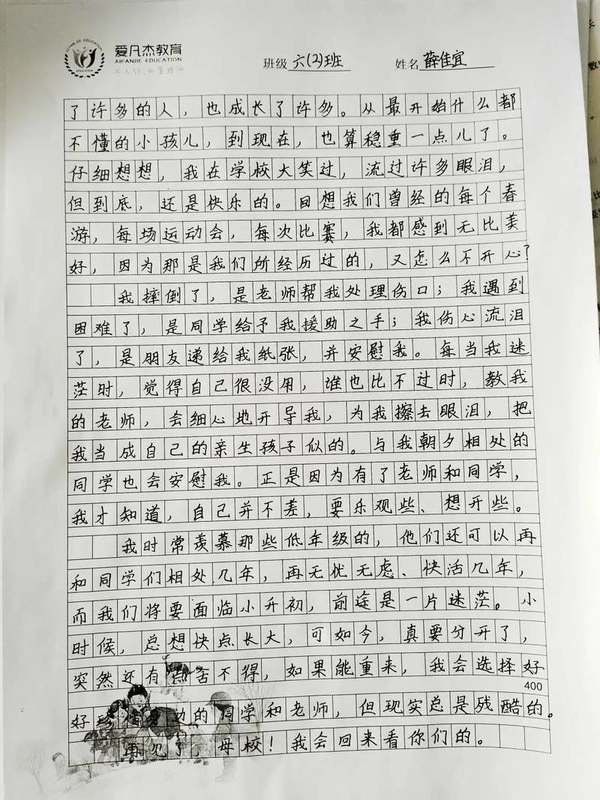 爱凡杰教育
AIFANJIE EDUCATION
班级 六(2)班 姓名 薛佳宜
了许多的人,也成长了许多。从最开始什么都
不懂的小孩儿,到现在,也算稳重一点儿了。
仔细想想,我在学校大笑过,流过许多眼泪,
但到底,还是快乐的。回想我们曾经的每个春
游,每场运动会,每次比赛,我都感到无比美
好,因为那是我们所经历过的,又怎么不开心?
我摔倒了,是老师帮我处理伤口;我遇到
困难了,是同学给予我援助之手;我伤心流泪
了,是朋友递给我纸张,并安慰我。每当我迷
茫时,觉得自己很没用,谁也比不过时,教我
的老师,会细心地开导我,为我擦去眼泪,把
我当成自己的亲生孩子似的。与我朝夕相处的
同学也会安慰我。正是因为有了老师和同学,
我才知道,自己并不差,要乐观些、想开些。
我时常羡慕那些低年级的,他们还可以再
和同学们相处几年,再无忧无虑、快活几年,
而我们将要面临小升初,前途是一片迷茫。小
时候,总想快点长大,可如今,真要分开了,
突然还有点舍不得,如果能重来,我会选择好
400
好珍惜身边的同学和老师,但现实总是残酷的。
再见了,母校!我会回来看你们的。